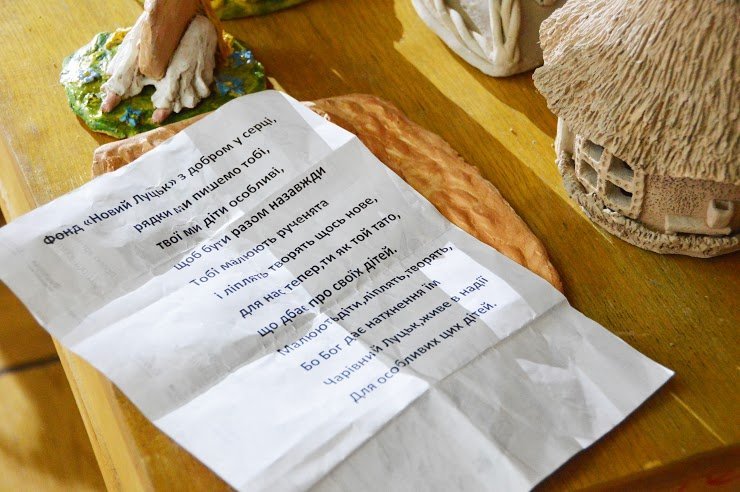 Фонд «Новий Луцьк» з добром у серці,
рядки ми пишемо тобі,
твої ми діти особливі,
щоб бути разом назавжди
Тобі малюють рученята
і ліплять,творять щось нове,
для нас тепер,ти як той тато,
що дбає про своїх дітей,
Малюють діти,ліплять,творять,
Бо Бог дає натхнення їм
Чарівний Луцьк,живе в надії
Для особливих цих дітей.